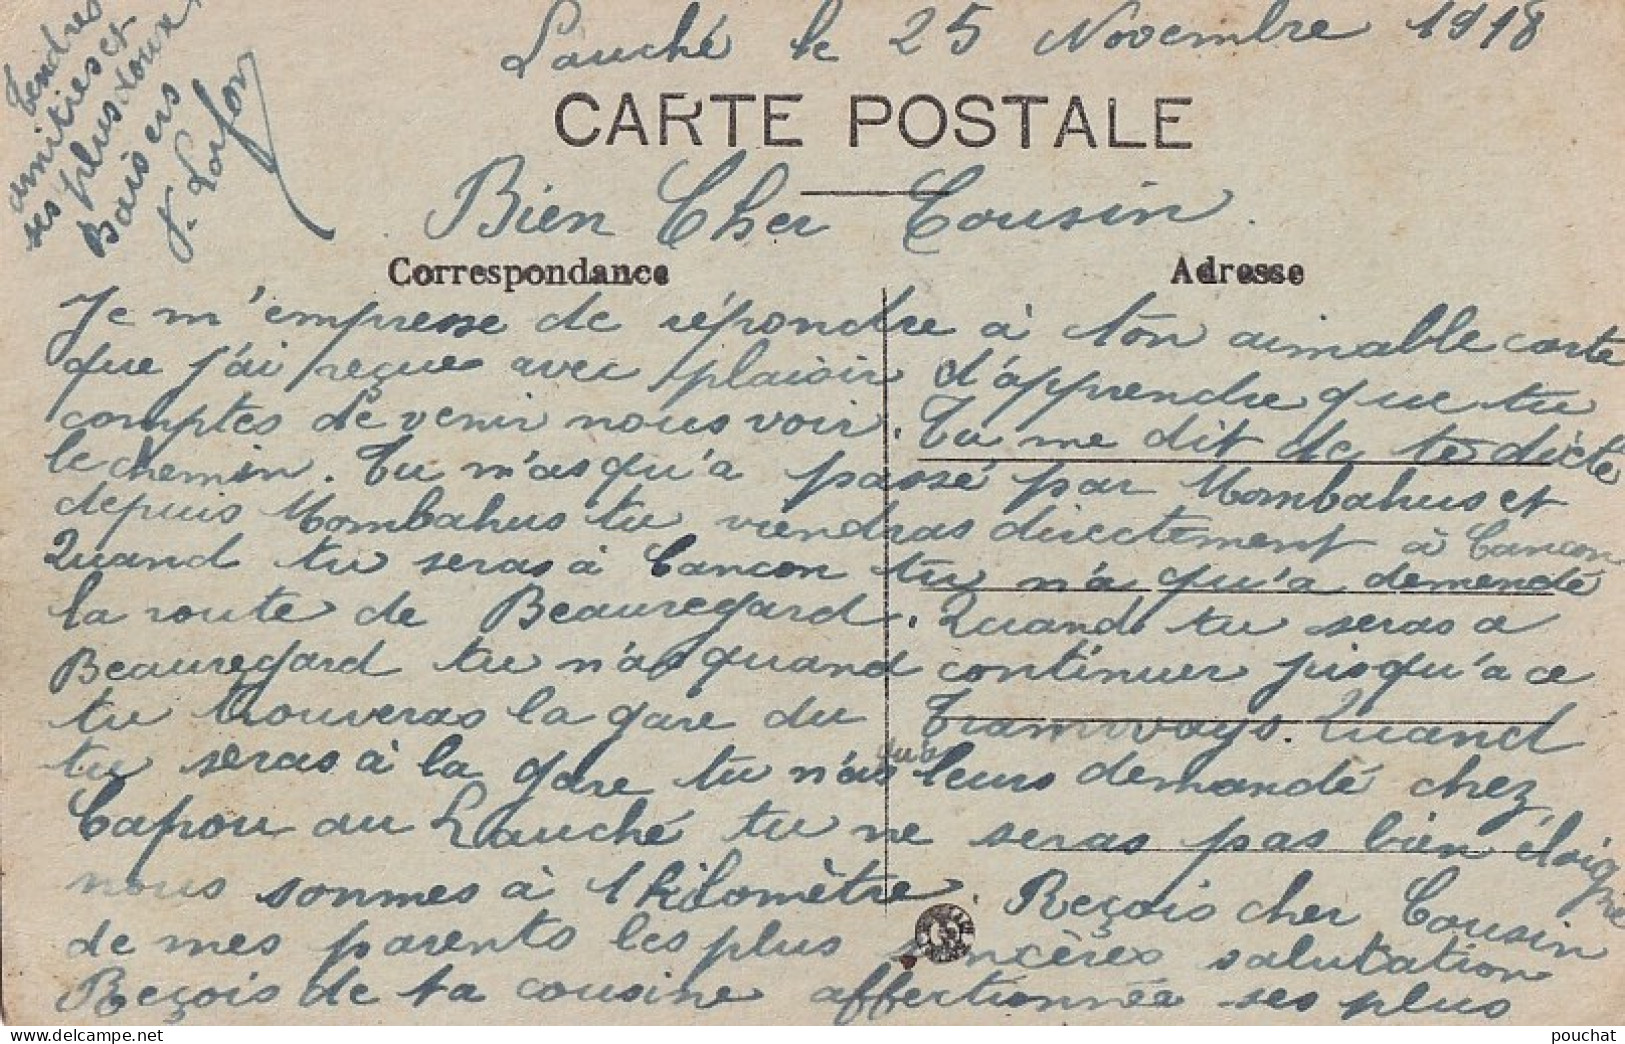 Lauché le 25 Novembre 1918
CARTE POSTALE
Bien Cher Cousin.
Correspondance
Adresse
Je m'empresse de répondre à ton aimable carte
que j'ai reçue avec plaisir d'apprendre que tu
comptes de venir nous voir. Tu me dit de te dicté
le chemin. Tu n'as qu'a passé par Mombahus et
depuis Mombahus tu viendras directement à Cancon
Quand tu seras à Cancon tu n'a qu'a demendé
la route de Beauregard. Quand tu seras a
Beauregard tu n'as quand continuer jusqu'a ce
tu trouveras la gare du Tramways. Quand
tu seras à la gare tu n'as qu'a leurs demandé chez
Capou au Lauché tu ne seras pas bien éloigné
nous sommes à 1 kilomètre. Reçois cher Cousin
de mes parents les plus sincères salutation
Reçois de ta cousine affectionnée ses plus
Tendres
amitiés et
ses plus doux
Baisers
pouchat